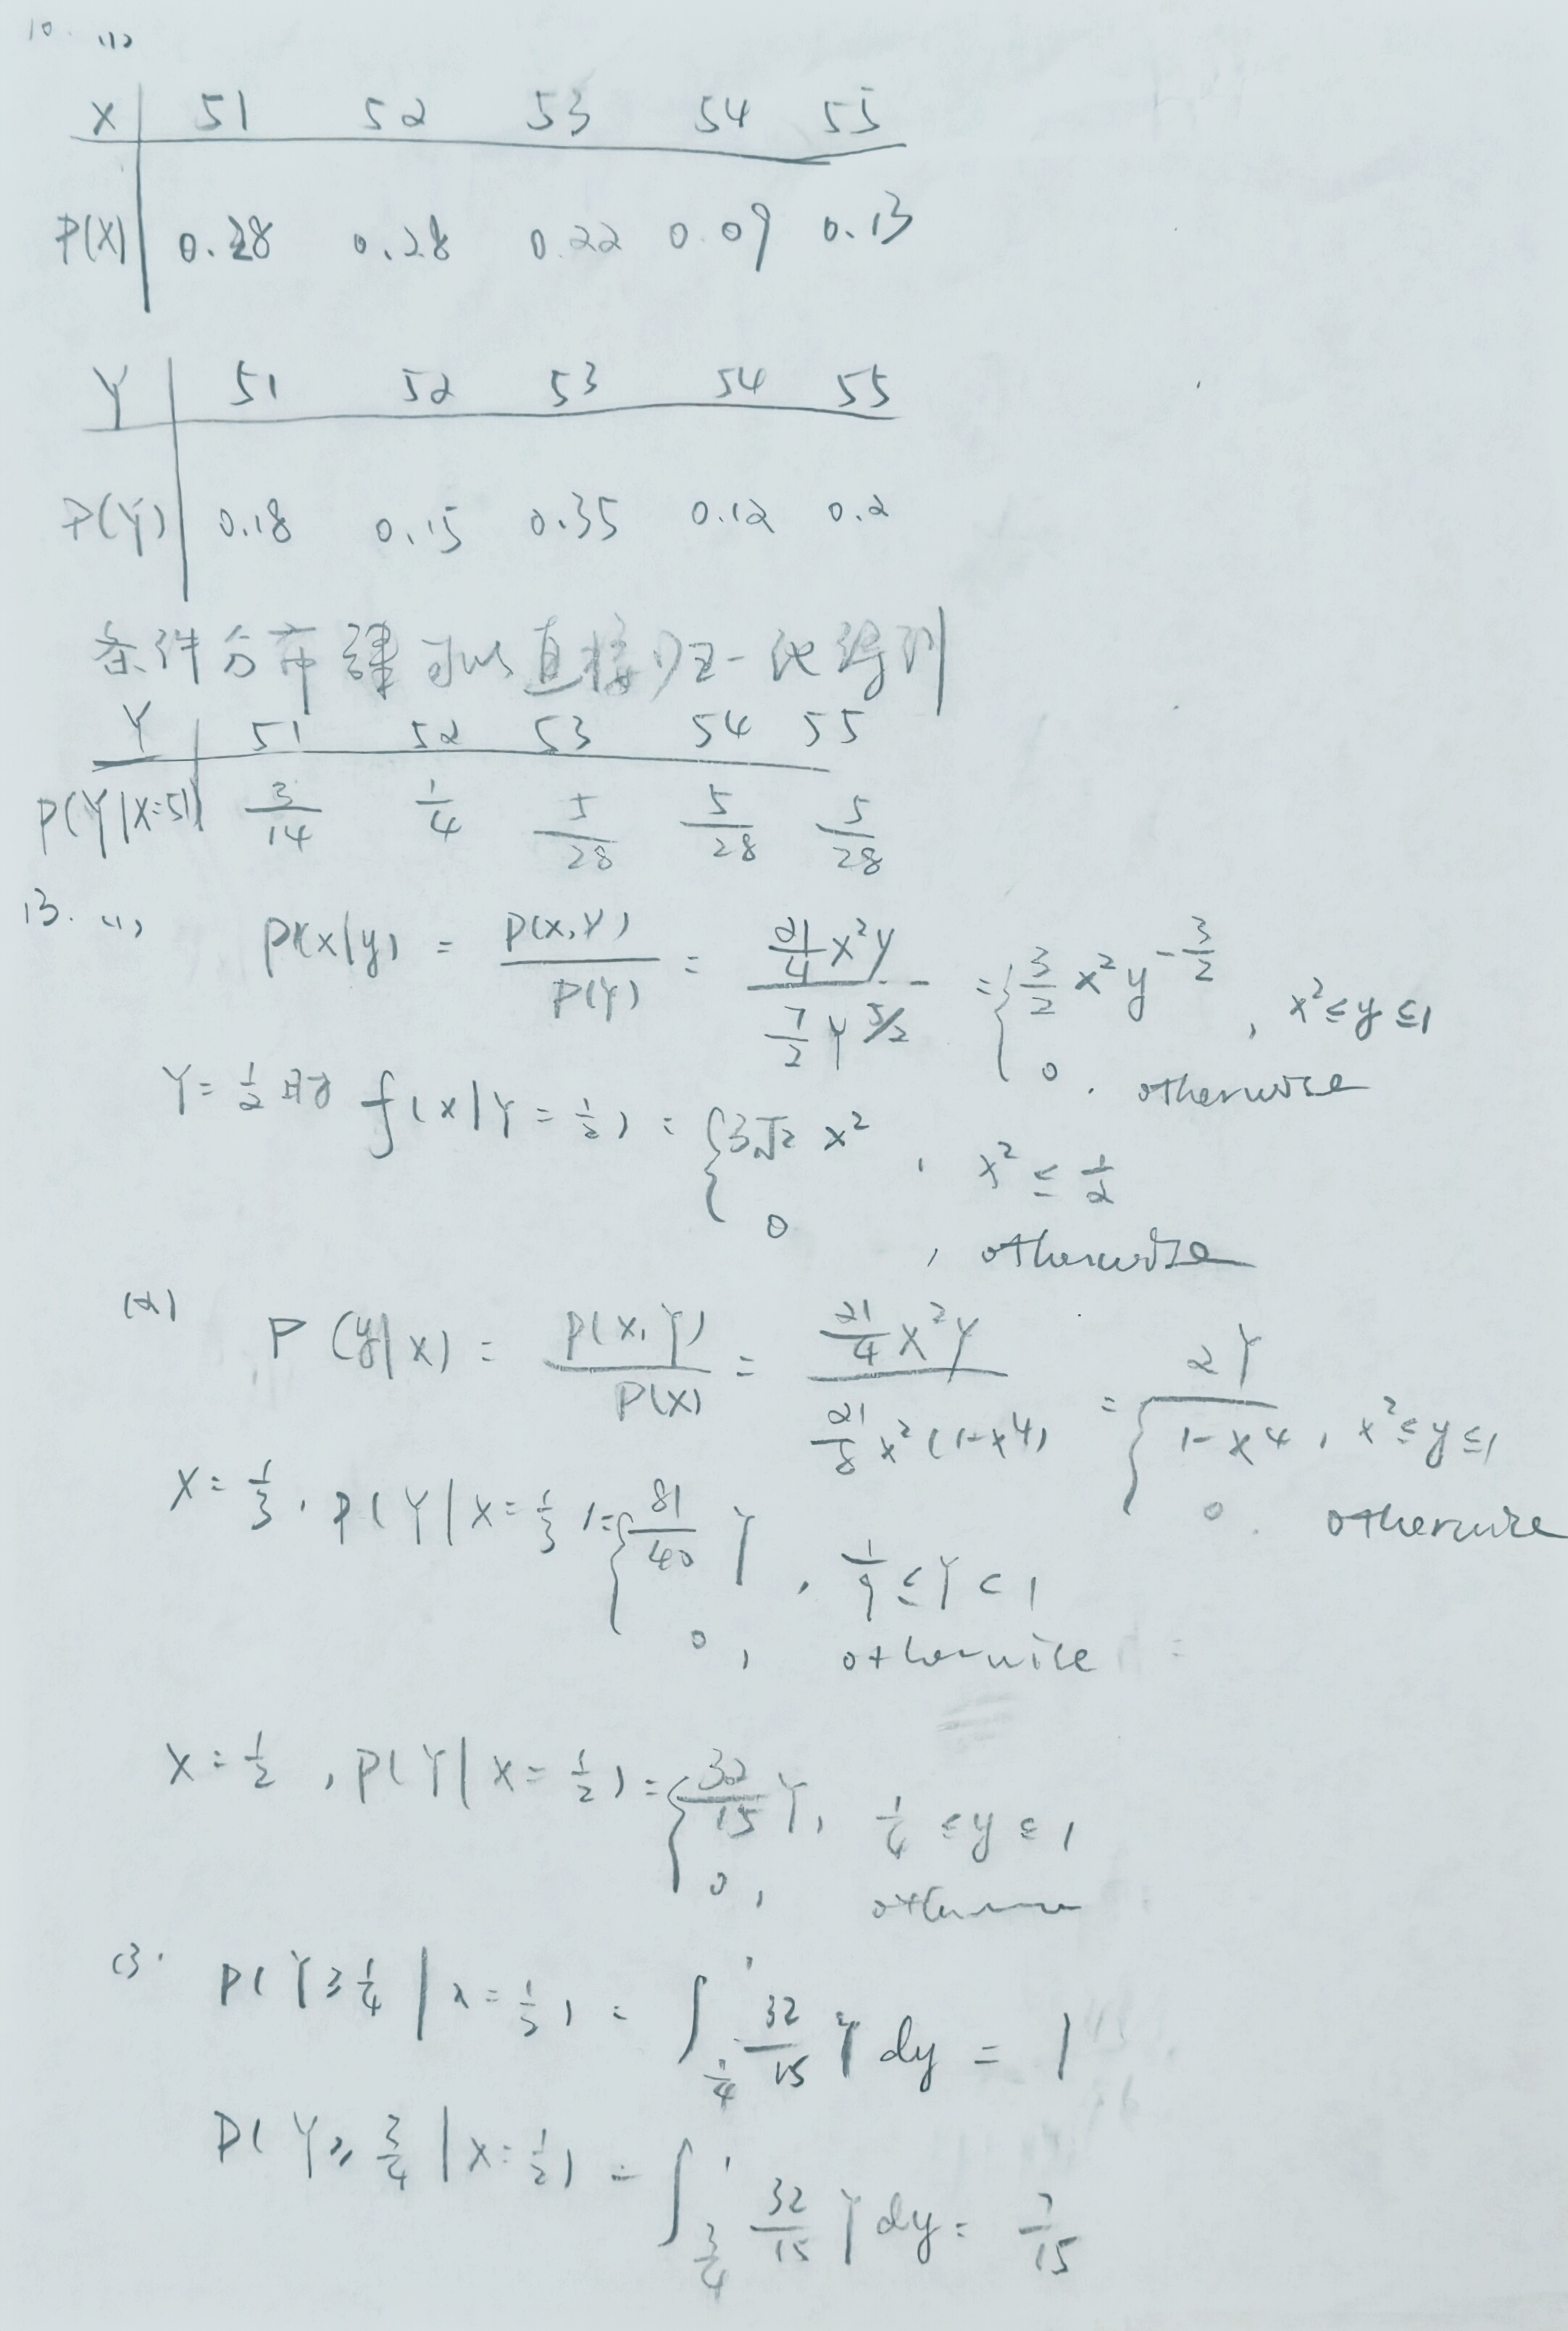 10. (1)
X 51 52 53 54 55
P(X) 0.28 0.28 0.22 0.09 0.13
Y 51 52 53 54 55
P(Y) 0.18 0.15 0.35 0.12 0.2
条件分布律可以直接归一化得到
Y 51 52 53 54 55
P(Y|X=51) 3/14 1/4 5/28 5/28 5/28
13. (1) P(x|y) = P(X,Y)/P(Y) = (21/4 x²y)/(7/2 y^{5/2}) = { 3/2 x² y^{-3/2}, x² ≤ y ≤ 1
0, otherwise
Y = 1/2 时 f(x|Y = 1/2) = { 3√2 x², x² ≤ 1/2
0, otherwise
(2) P(y|x) = P(X,Y)/P(X) = (21/4 x²y)/(21/8 x²(1-x⁴)) = { 2Y/(1-x⁴), x² ≤ y ≤ 1
0. otherwise
X = 1/3, P(Y|X = 1/3) = { 81/40 Y, 1/9 ≤ Y < 1
0, otherwise
X = 1/2, P(Y|X = 1/2) = { 32/15 Y, 1/4 ≤ y ≤ 1
0, otherwise
(3. P(Y ≥ 1/4 | x = 1/2) = ∫_{1/4}^{1} 32/15 Y dy = 1
P(Y ≥ 3/4 | X = 1/2) = ∫_{3/4}^{1} 32/15 Y dy = 7/15